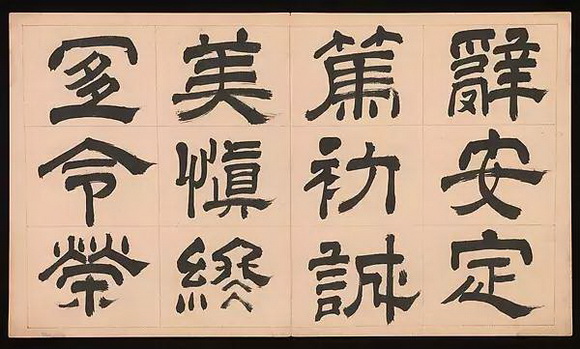 辭安定
篤初誠
美慎終
宜令榮